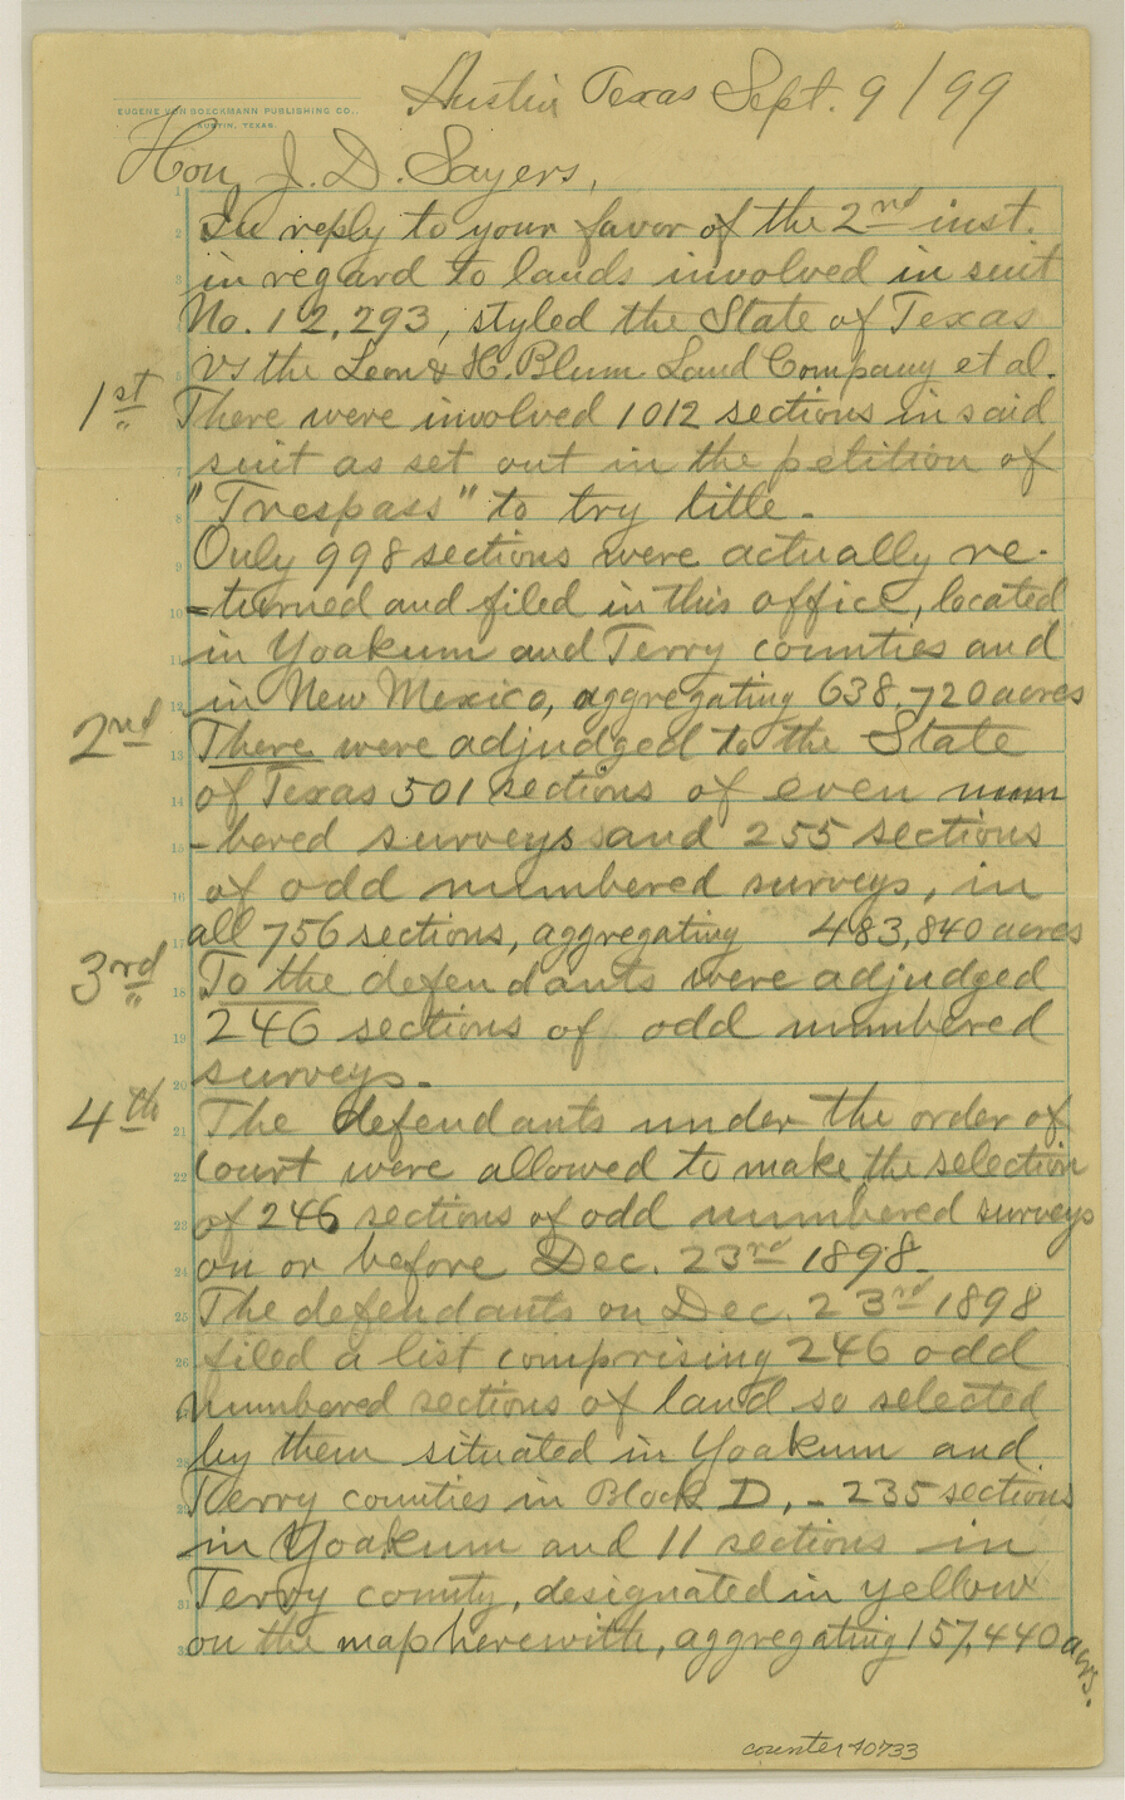 EUGENE VON BOECKMANN PUBLISHING CO.,
AUSTIN, TEXAS.
Austin Texas Sept. 9 / 99
Hon J. D. Sayers,
In reply to your favor of the 2nd inst.
in regard to lands involved in suit
No. 12,293, styled the State of Texas
vs the Leon & H. Blum Land Company et al.
1st There were involved 1012 sections in said
suit as set out in the petition of
"Trespass" to try title.
Only 998 sections were actually re-
-turned and filed in this office, located
in Yoakum and Terry counties and
in New Mexico, aggregating 638,720 acres
2nd There were adjudged to the State
of Texas 501 sections of even num
-bered surveys and 255 sections
of odd numbered surveys, in
all 756 sections, aggregating 483,840 acres
3rd To the defendants were adjudged
246 sections of odd numbered
surveys.
4th The defendants under the order of
Court were allowed to make the selection
of 246 sections of odd numbered surveys
on or before Dec. 23rd 1898.
The defendants on Dec. 23rd 1898
filed a list comprising 246 odd
numbered sections of land so selected
by them situated in Yoakum and
Terry counties in Block D, - 235 sections
in Yoakum and 11 sections in
Terry county, designated in yellow
on the map herewith, aggregating 157,440 acrs.
counter 40733